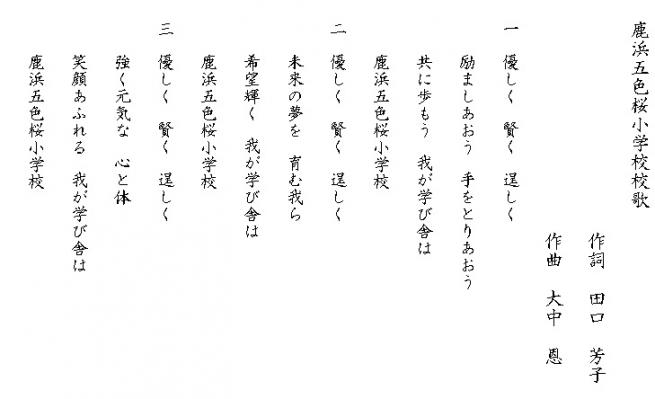 鹿浜五色桜小学校校歌
作詞　田口　芳子
作曲　大中　恩
一　優しく　賢く　逞しく
励ましあおう　手をとりあおう
共に歩もう　我が学び舎は
鹿浜五色桜小学校
二　優しく　賢く　逞しく
未来の夢を　育む我ら
希望輝く　我が学び舎は
鹿浜五色桜小学校
三　優しく　賢く　逞しく
強く元気な　心と体
笑顔あふれる　我が学び舎は
鹿浜五色桜小学校